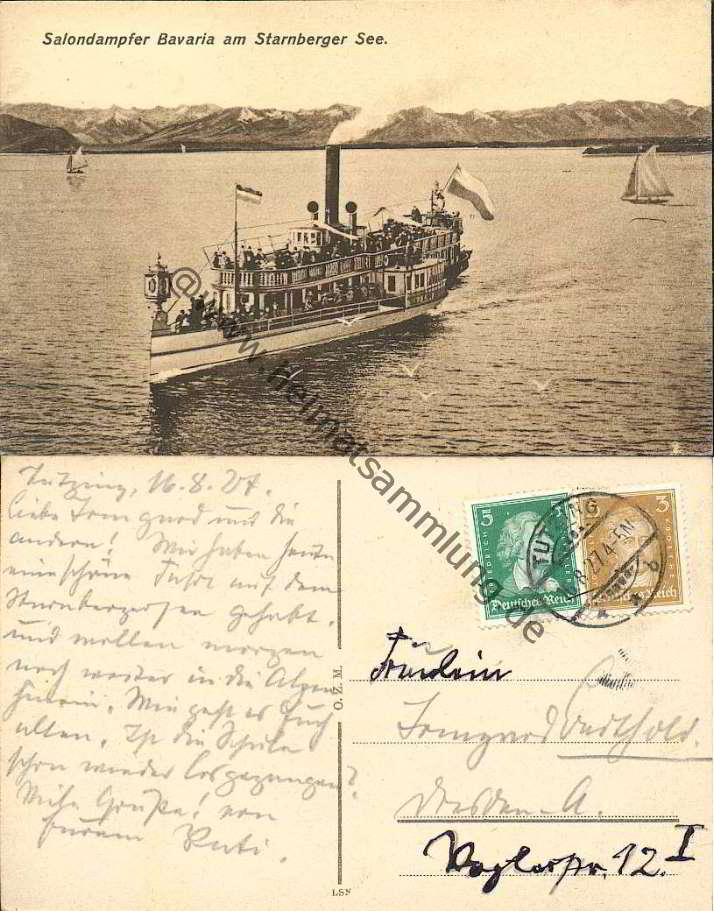 Salondampfer Bavaria am Starnberger See.
@ www.Heimatsammlung.de
Tutzing, 16.8.27.
Liebe Irmgard und die
anderen! Wir haben heute
eine schöne Fahrt auf dem
Starnbergersee gehabt,
und wollen morgen
noch weiter in die Alpen
hinein. Wie geht es Euch
allen. Ist die Schule
schon wieder losgegangen?
Viele Grüße! von
Eurem Rudi.
O. Z. M.
LSN
3 3
Deutsches Reich Deutsches Reich
TUTZING
8.27.4-5N
Fräulein
Irmgard Berthold.
Dresden-A.
Voglerstr. 12. I